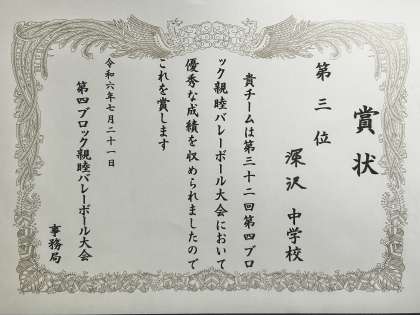 賞状
第三位
深沢中学校
貴チームは第三十二回第四ブロ
ック親睦バレーボール大会において
優秀な成績を収められましたので
これを賞します
令和六年七月二十一日
第四ブロック親睦バレーボール大会
事務局